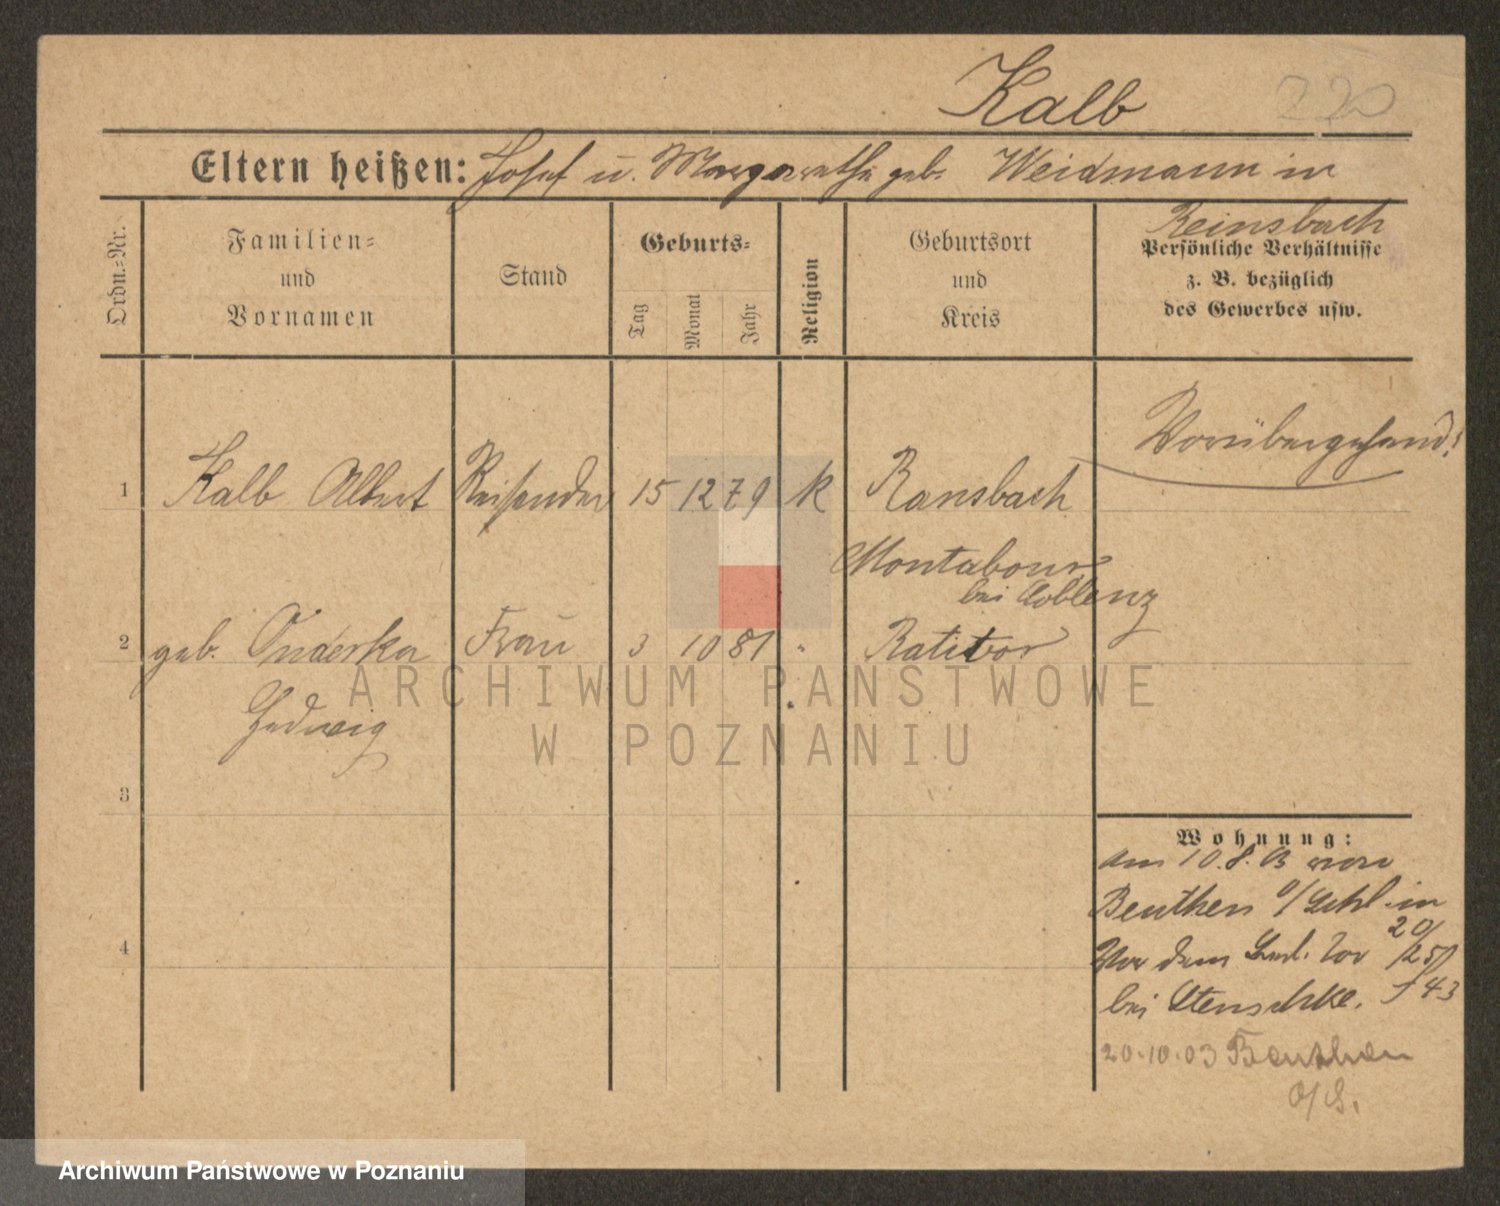 Kalb 220
Eltern heißen: Josef u. Margarethe geb. Weidmann in
Reinsbach
Ordn.-Nr.
Familien-
und
Vornamen
Stand
Geburts-
Tag
Monat
Jahr
Religion
Geburtsort
und
Kreis
Persönliche Verhältnisse
z. B. bezüglich
des Gewerbes usw.
Vorübergehend!
1 Kalb Albert Reisender 15 12 79 K Ransbach
Montabour
bei Coblenz
2 geb. Onderka Frau 3 10 81 " Ratibor
Hedwig
3
4
Wohnung:
am 10.8.03 von
Beuthen o/Schl. in
Vor dem Tor 20/
bei 43
20.10.03 Beuthen
O/S.
ARCHIWUM PAŃSTWOWE
W POZNANIU
Archiwum Państwowe w Poznaniu